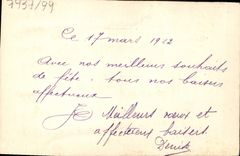 7957/99
Ce 17 mars 1912
Avec nos meilleurs souhaits
de fête. tous nos baisers
affectueux
Meilleurs vœux et
affectueux baisers
Denise